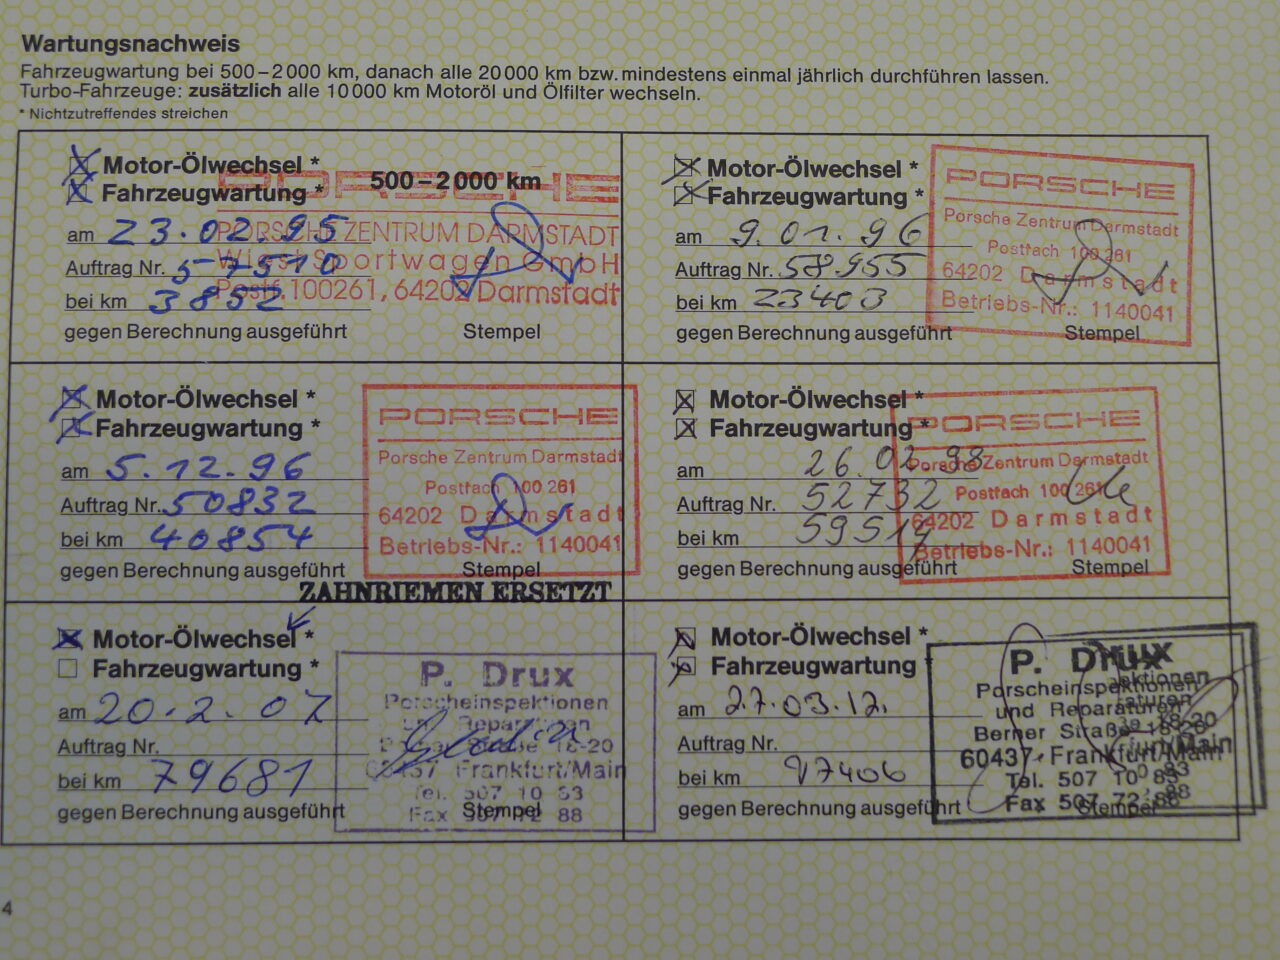 Wartungsnachweis
Fahrzeugwartung bei 500–2 000 km, danach alle 20 000 km bzw. mindestens einmal jährlich durchführen lassen.
Turbo-Fahrzeuge: zusätzlich alle 10 000 km Motoröl und Ölfilter wechseln.
* Nichtzutreffendes streichen
Motor-Ölwechsel *
Fahrzeugwartung *
500–2 000 km
am 23.02.95
Auftrag Nr. 57510
bei km 3852
gegen Berechnung ausgeführt
Stempel
PORSCHE
PORSCHE ZENTRUM DARMSTADT
Wiest Sportwagen GmbH
Postf. 100261, 64202 Darmstadt
Motor-Ölwechsel *
Fahrzeugwartung *
am 9.01.96
Auftrag Nr. 58955
bei km 23403
gegen Berechnung ausgeführt
Stempel
PORSCHE
Porsche Zentrum Darmstadt
Postfach 100 261
64202 Darmstadt
Betriebs-Nr.: 1140041
Motor-Ölwechsel *
Fahrzeugwartung *
am 5.12.96
Auftrag Nr. 50832
bei km 40854
gegen Berechnung ausgeführt
Stempel
PORSCHE
Porsche Zentrum Darmstadt
Postfach 100 261
64202 Darmstadt
Betriebs-Nr.: 1140041
ZAHNRIEMEN ERSETZT
Motor-Ölwechsel *
Fahrzeugwartung *
am 26.02.98
Auftrag Nr. 52732
bei km 59514
gegen Berechnung ausgeführt
Stempel
PORSCHE
Porsche Zentrum Darmstadt
Postfach 100 261
64202 Darmstadt
Betriebs-Nr.: 1140041
Motor-Ölwechsel *
Fahrzeugwartung *
am 20.2.07
Auftrag Nr.
bei km 79681
gegen Berechnung ausgeführt
Stempel
P. Drux
Porscheinspektionen
und Reparaturen
Berner Straße 18-20
60437 Frankfurt/Main
Tel. 507 10 83
Fax 507 72 88
Motor-Ölwechsel *
Fahrzeugwartung *
am 27.03.12.
Auftrag Nr.
bei km 97406
gegen Berechnung ausgeführt
Stempel
P. Drux
Porscheinspektionen
und Reparaturen
Berner Straße 18-20
60437 Frankfurt/Main
Tel. 507 10 83
Fax 507 72 88
4